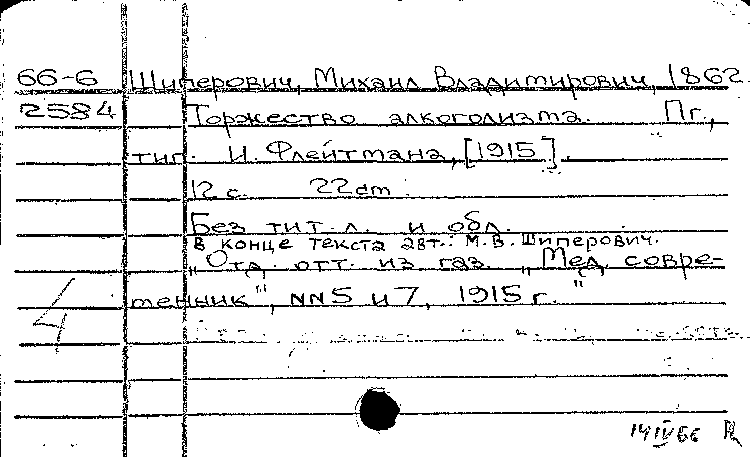 66-6 Шиперович, Михаил Владимирович, 1862
2584 Торжество алкоголизма. Пг.,
тип. И. Флейтмана, [1915].
12 с. 22 cm.
Без тит. л. и обл.
В конце текста авт.: М.В. Шиперович.
„Отд. отт. из газ. „Мед. совре-
менник", NN 5 и 7, 1915 г."
4
14 IV 66